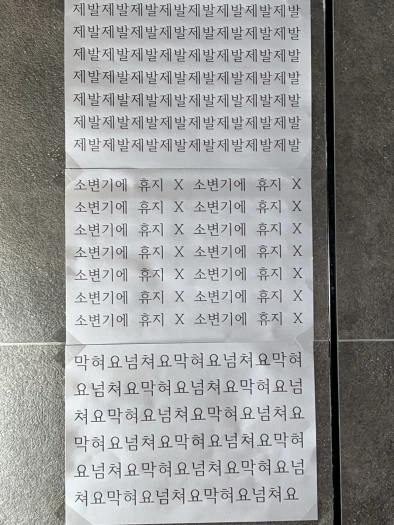 제발제발제발제발제발제발제발제발
제발제발제발제발제발제발제발제발
제발제발제발제발제발제발제발제발
제발제발제발제발제발제발제발제발
제발제발제발제발제발제발제발제발
제발제발제발제발제발제발제발제발
제발제발제발제발제발제발제발제발
소변기에 휴지 X 소변기에 휴지 X
소변기에 휴지 X 소변기에 휴지 X
소변기에 휴지 X 소변기에 휴지 X
소변기에 휴지 X 소변기에 휴지 X
소변기에 휴지 X 소변기에 휴지 X
소변기에 휴지 X 소변기에 휴지 X
소변기에 휴지 X 소변기에 휴지 X
막혀요넘쳐요막혀요넘쳐요막혀
요넘쳐요막혀요넘쳐요막혀요넘
쳐요막혀요넘쳐요막혀요넘쳐요
막혀요넘쳐요막혀요넘쳐요막혀
요넘쳐요막혀요넘쳐요막혀요넘
쳐요막혀요넘쳐요막혀요넘쳐요